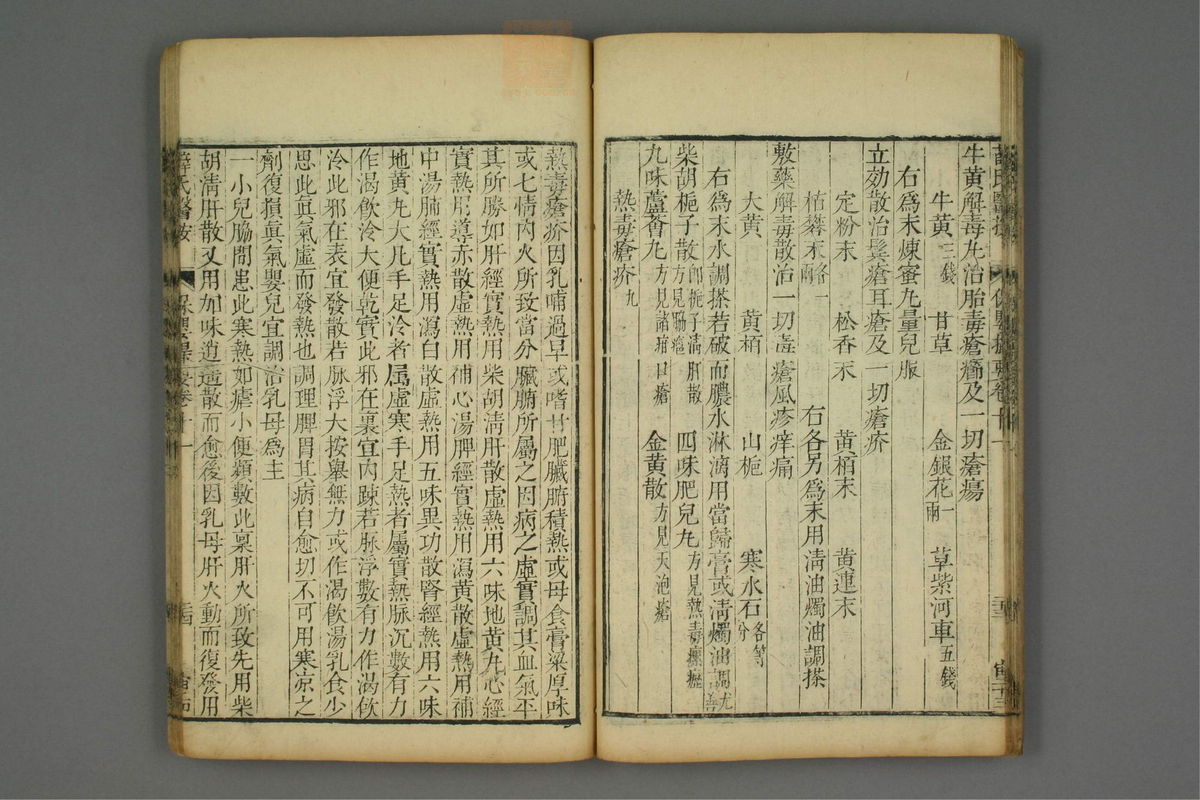 牛黃解毒丸治胎毒瘡癤及一切瘡瘍
牛黃三錢 甘草 金銀花一兩 草紫河車五錢
右爲末煉蜜丸量兒服
立効散治鬂瘡耳瘡及一切瘡疥
定粉末 松香末 黃栢末 黃連末
枯礬末各一兩 右各另爲末用淸油燭油調搽
敷藥解毒散治一切毒瘡風疹痒痛
大黃 黃栢 山梔 寒水石各等分
右爲末水調搽若破而膿水淋漓用當歸膏或淸燭油調尤善
柴胡梔子散卽梔子淸肝散方見脇癰 四味肥兒丸方見熱毒瘰癧
九味蘆薈丸方見諸疳口瘡 金黃散方見天泡瘡
熱毒瘡疥九
熱毒瘡疥因乳哺過早或嗜甘肥臟腑積熱或母食膏粱厚味
或七情内火所致當分臟腑所屬之因病之虛實調其血氣平
其所勝如肝經實熱用柴胡淸肝散虛熱用六味地黃丸心經
實熱用導赤散虛熱用補心湯脾經實熱用瀉黃散虛熱用補
中湯肺經實熱用瀉白散虛熱用五味異功散腎經熱用六味
地黃丸大凡手足冷者屬虛寒手足熱者屬實熱脉沉數有力
作渴飮冷大便乾實此邪在裏宜内踈若脉浮數有力作渴飮
冷此邪在表宜發散若脉浮大按舉無力或作渴飮湯乳食少
思此眞氣虛而發熱也調理脾胃其病自愈切不可用寒凉之
劑復損眞氣嬰兒宜調治乳母爲主
一小兒脇間患此寒熱如瘧小便頻數此稟肝火所致先用柴
胡淸肝散又用加味逍遙散而愈後因乳母肝火動而復發用
薛氏醫按 保嬰撮要卷十一